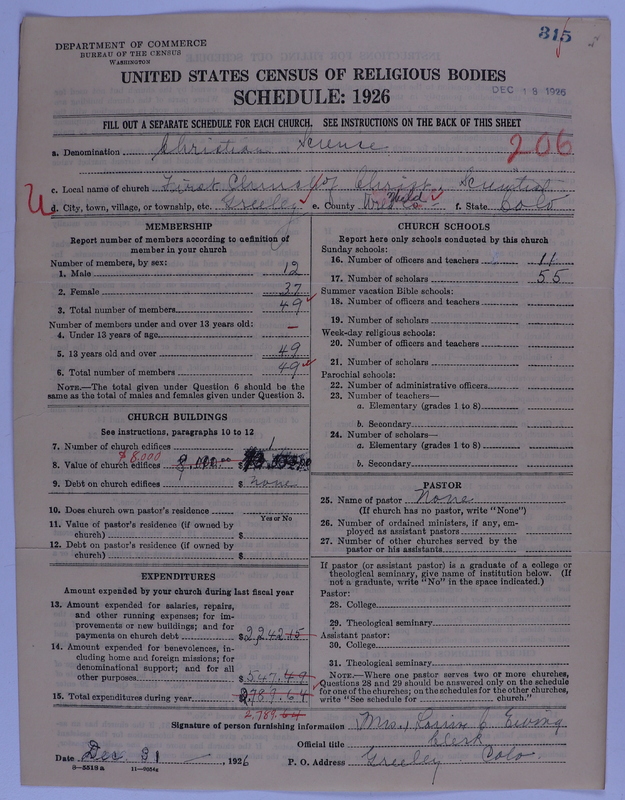 315
DEPARTMENT OF COMMERCE
BUREAU OF THE CENSUS
WASHINGTON
UNITED STATES CENSUS OF RELIGIOUS BODIES
SCHEDULE: 1926
DEC 18 1926
FILL OUT A SEPARATE SCHEDULE FOR EACH CHURCH. SEE INSTRUCTIONS ON THE BACK OF THIS SHEET
a. Denomination Christian Science 206
c. Local name of church First Church of Christ, Scientist
d. City, town, village, or township, etc. Greeley e. County Weld f. State Colo
MEMBERSHIP
Report number of members according to definition of
member in your church
Number of members, by sex:
1. Male 12
2. Female 37
3. Total number of members 49
Number of members under and over 13 years old:
4. Under 13 years of age —
5. 13 years old and over 49
6. Total number of members 49
NOTE.—The total given under Question 6 should be the
same as the total of males and females given under Question 3.
CHURCH BUILDINGS
See instructions, paragraphs 10 to 12
7. Number of church edifices 1
$8,000
8. Value of church edifices $
9. Debt on church edifices $ none
10. Does church own pastor's residence
Yes or No
11. Value of pastor's residence (if owned by
church) $
12. Debt on pastor's residence (if owned by
church) $
EXPENDITURES
Amount expended by your church during last fiscal year
13. Amount expended for salaries, repairs,
and other running expenses; for im-
provements or new buildings; and for
payments on church debt $2,242.15
14. Amount expended for benevolences, in-
cluding home and foreign missions; for
denominational support; and for all
other purposes $547.49
15. Total expenditures during year 2,789.64
2,789.64
CHURCH SCHOOLS
Report here only schools conducted by this church
Sunday schools:
16. Number of officers and teachers 11
17. Number of scholars 55
Summer vacation Bible schools:
18. Number of officers and teachers
19. Number of scholars
Week-day religious schools:
20. Number of officers and teachers
21. Number of scholars
Parochial schools:
22. Number of administrative officers
23. Number of teachers—
a. Elementary (grades 1 to 8)
b. Secondary
24. Number of scholars—
a. Elementary (grades 1 to 8)
b. Secondary
PASTOR
25. Name of pastor None
(If church has no pastor, write "None")
26. Number of ordained ministers, if any, em-
ployed as assistant pastors
27. Number of other churches served by the
pastor or his assistants
If pastor (or assistant pastor) is a graduate of a college or
theological seminary, give name of institution below. (If
not a graduate, write "No" in the space indicated.)
Pastor:
28. College
29. Theological seminary
Assistant pastor:
30. College
31. Theological seminary
NOTE.—Where one pastor serves two or more churches,
Questions 28 and 29 should be answered only on the schedule
for one of the churches; on the schedules for the other churches,
write "See schedule for church."
Signature of person furnishing information Mrs. Ewing
Official title Clerk
Date Dec. 31, 1926 P. O. Address Greeley Colo.
8-5518a 11-2654a